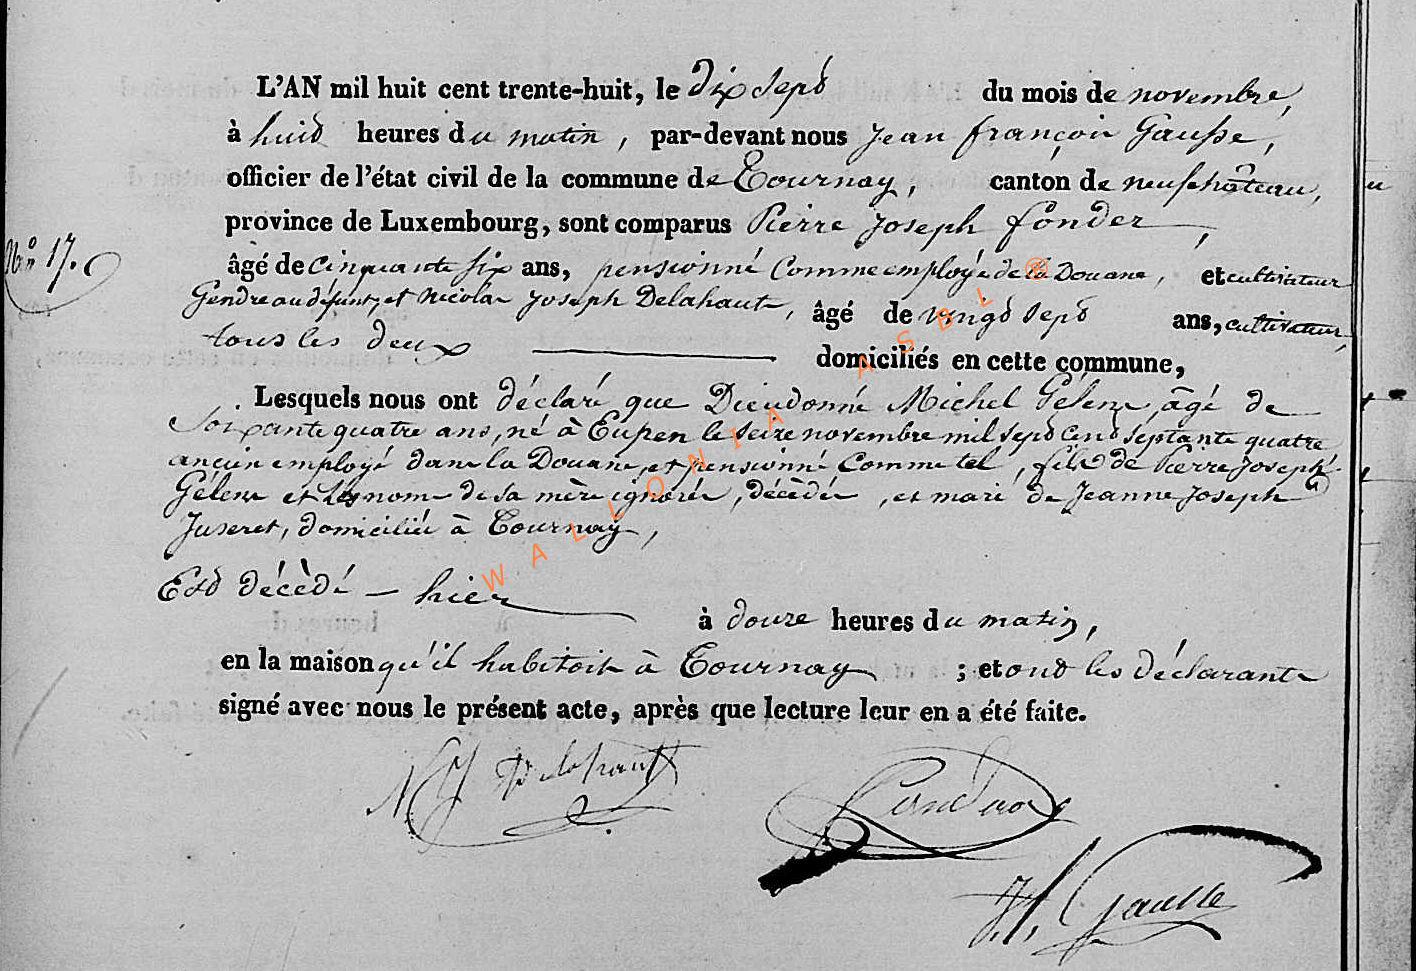 L'AN mil huit cent trente-huit, le dix sept du mois de novembre,
à huit heures du matin, par-devant nous Jean françois Gausse,
officier de l'état civil de la commune de Tournay, canton de neufchâteau,
province de Luxembourg, sont comparus Pierre Joseph fonder,
N° 17.
âgé de cinquante six ans, pensionné Comme employé de la Douane, et cultivateur
Gendre au défunt, et Nicolas Joseph Delahaut, âgé de vingt sept ans, cultivateur,
tous les deux domiciliés en cette commune,
Lesquels nous ont déclaré que Dieudonné Michel Gélenne, âgé de
Soixante quatre ans, né à Eupen le seize novembre mil sept cent septante quatre
ancien employé dans la Douane, et pensionné Comme tel, fils de Pierre Joseph
Gélenne et nom de sa mère ignorée, décédée, et mari de Jeanne Joseph
Juseret, domicilié à Tournay,
Est décédé - hier à douze heures du matin,
en la maison qu'il habitoit à Tournay ; et ont les déclarants
signé avec nous le présent acte, après que lecture leur en a été faite.
NJ Delahaut
J. f. Gausse
WALLONIA ASBL ®